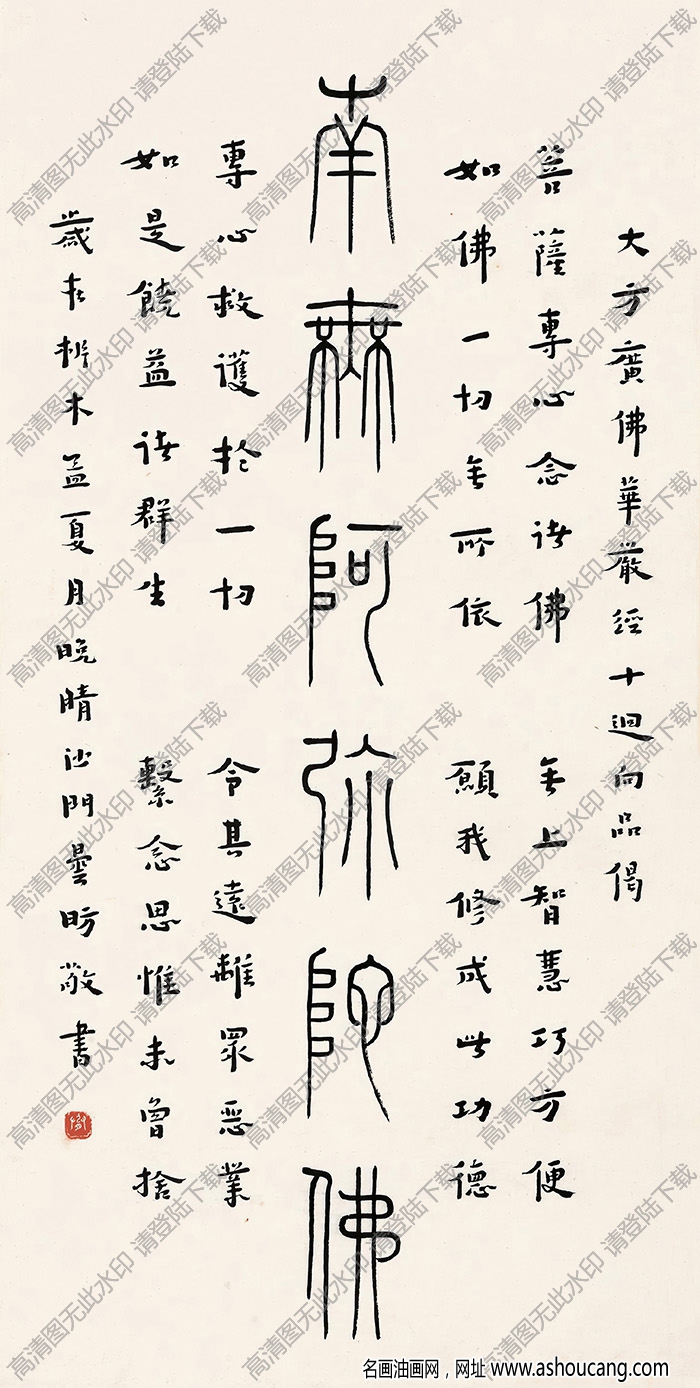 大方廣佛華嚴經十迴向品偈
菩薩專心念諸佛 無上智慧巧方便
如佛一切無所依 願我修成此功德
南無阿弥陀佛
專心救護於一切 令其遠離眾惡業
如是饒益諸群生 繫念思惟未曾捨
歲在析木孟夏月晚晴沙門曇昉敬書
高清图无此水印 请登陆下载
名画油画网，网址 www.ashoucang.com